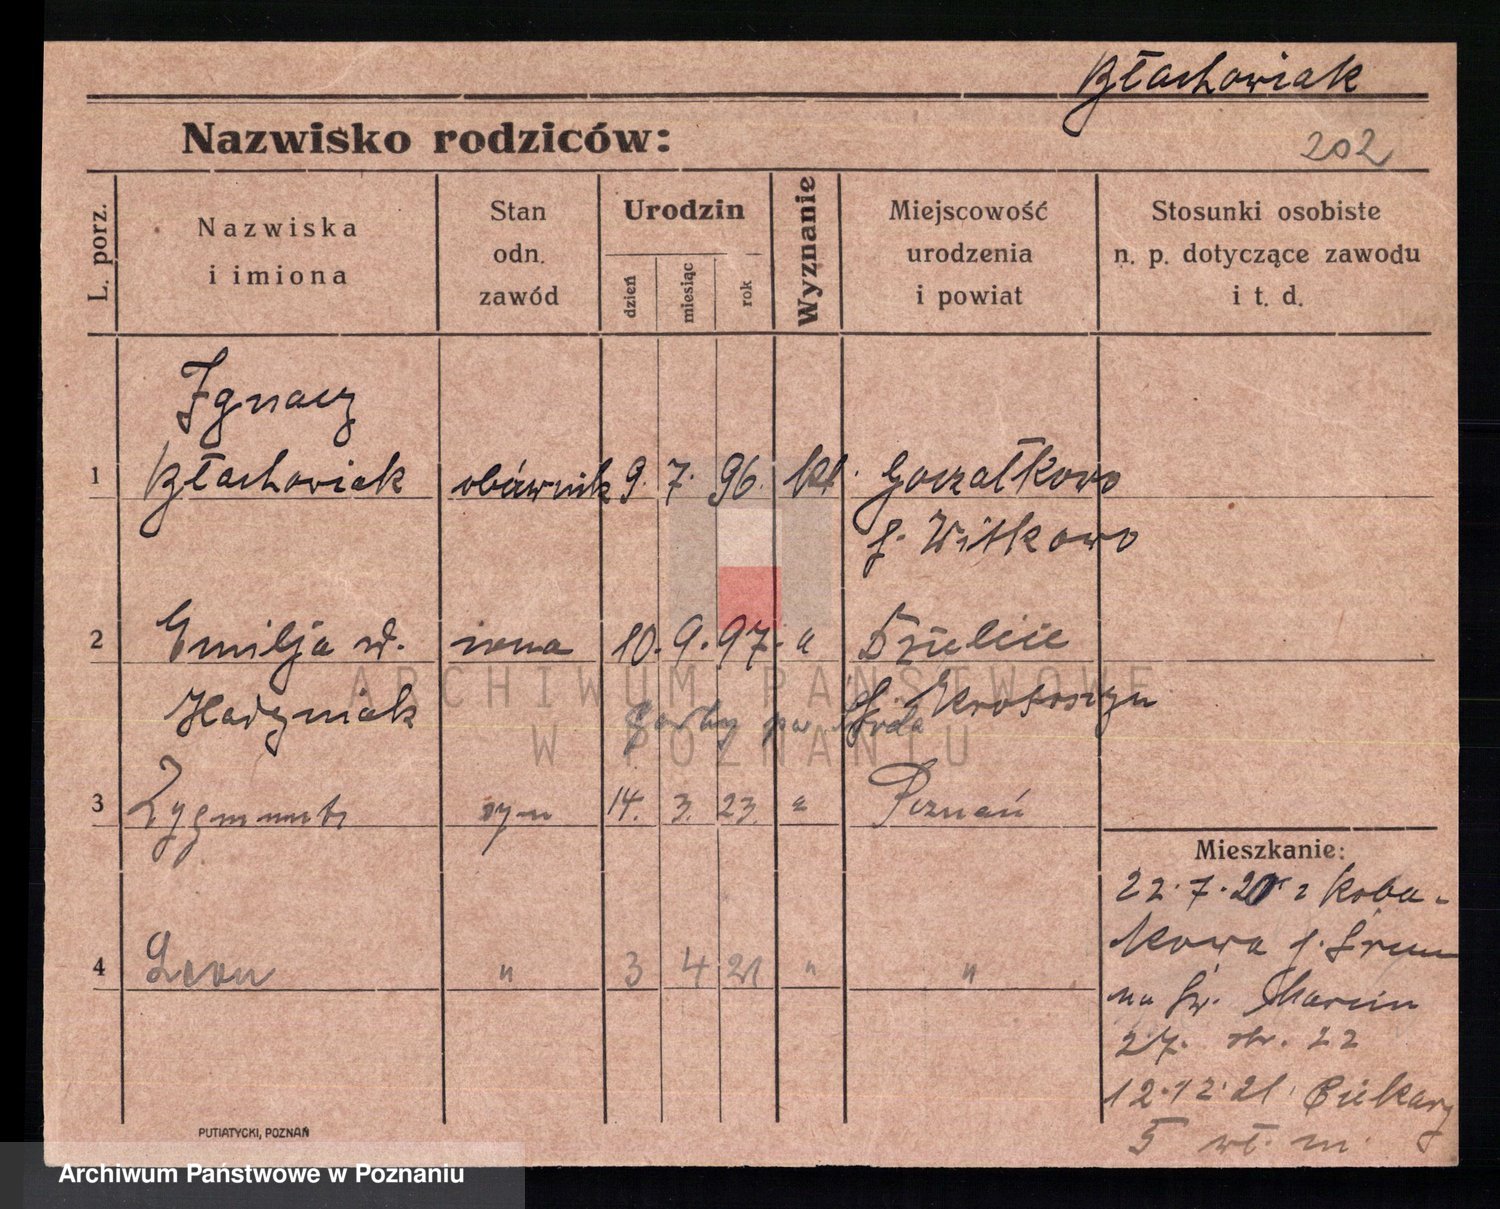 Błachowiak
Nazwisko rodziców:
202
L. porz.
Nazwiska
i imiona
Stan
odn.
zawód
Urodzin
dzień
miesiąc
rok
Wyznanie
Miejscowość
urodzenia
i powiat
Stosunki osobiste
n. p. dotyczące zawodu
i t. d.
Ignacy
1 Błachowiak 9. 7. 96. kt. Gorzałkowo
p. Witkowo
2 Emilja żona 10. 9. 97. "
Krotoszyn
Środa
3 Zygmunt syn 14. 3. 23. " Poznań
Mieszkanie:
22.7.20 z Roba-
kowa p. Śrem
4 Leon " 3 4 21 " "
na Św. Marcin
27.
22
12.12.21 Piekary
5 wł. m.
PUTIATYCKI, POZNAŃ
ARCHIWUM PAŃSTWOWE
W POZNANIU
Archiwum Państwowe w Poznaniu